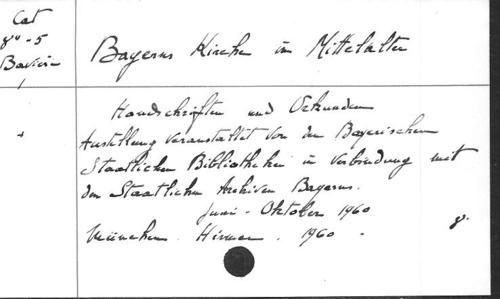 Cat
8° - 5
Bavière
Bayerns Kirche im Mittelalter
Handschriften und Urkunden
Austellung veranstaltet von den Bayerischen
Staatlichen Bibliotheken in Verbindung mit
den Staatlichen Archiven Bayerns.
Juni - Oktober 1960
München. Hirmer. 1960.
8°